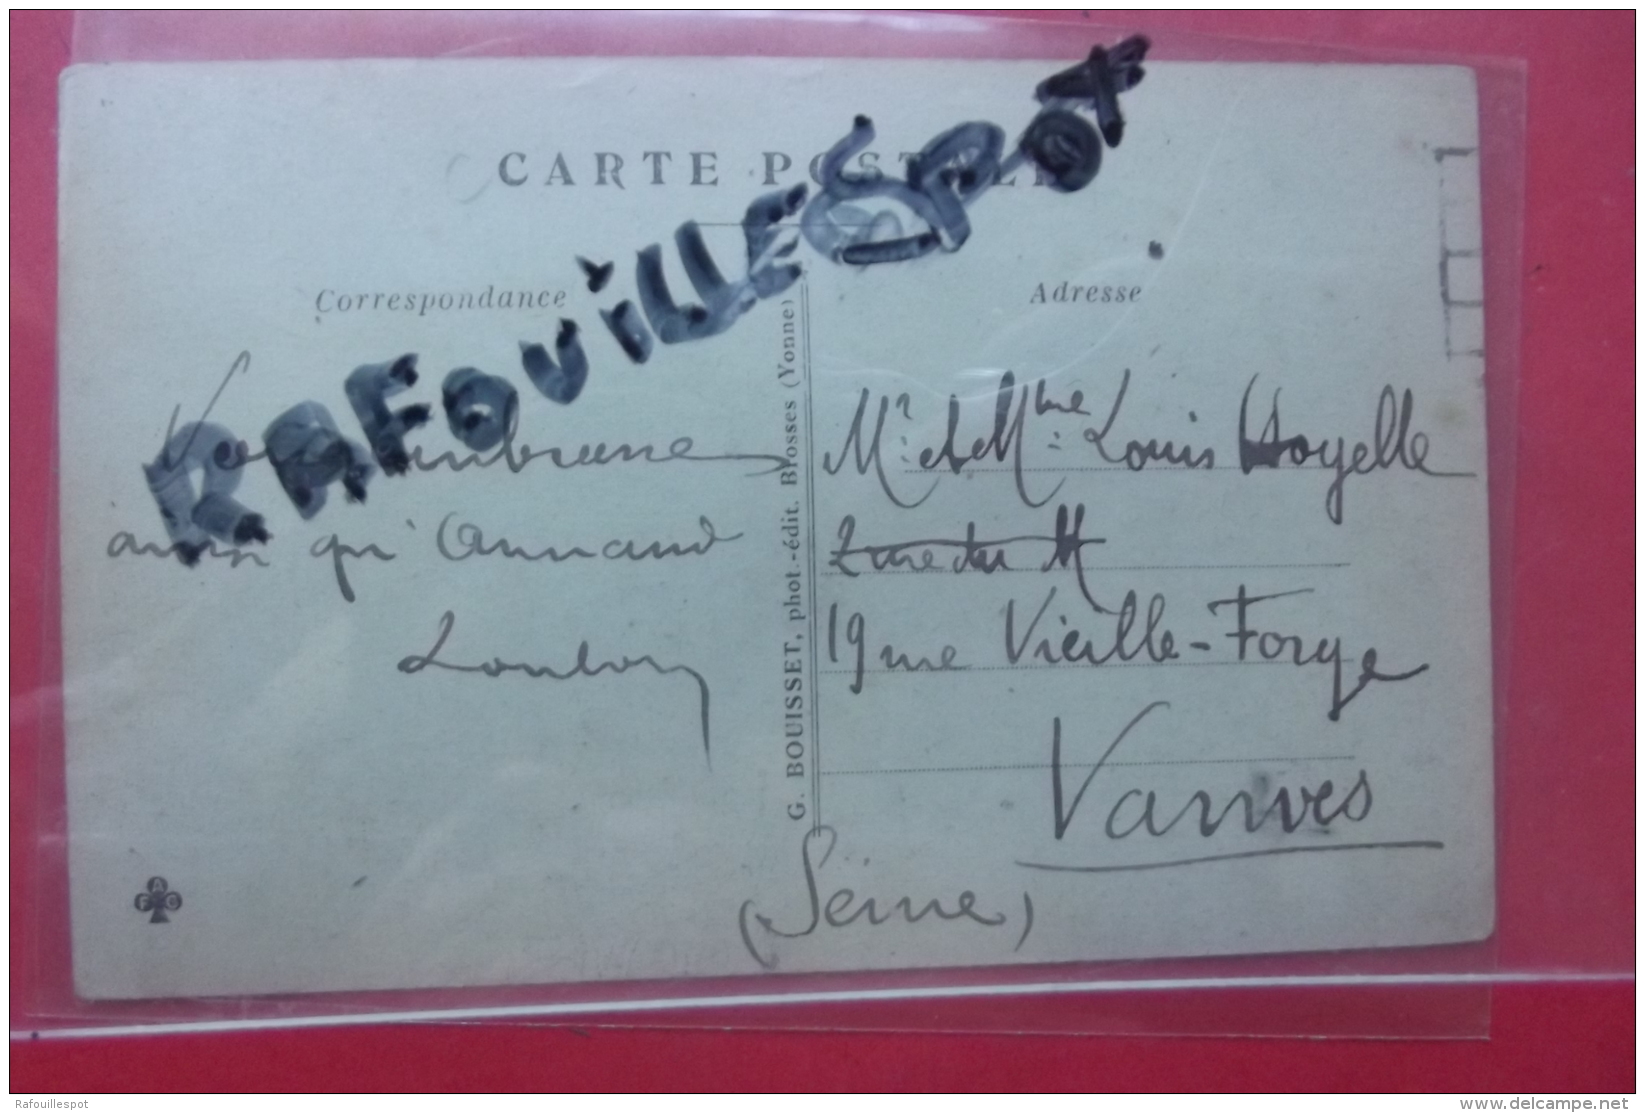 CARTE POSTALE
RAFOUILLESPOT
Correspondance
Vous embrasse
ainsi qu'Armand
Loulou
G. BOUISSET, phot.-édit. Brosses (Yonne)
Adresse
Mr. et Mme. Louis Hoyelle
2 rue du M
19 rue Vieille-Forge
Vanves
(Seine)
A
F C
Rafouillespot
delcampe.net